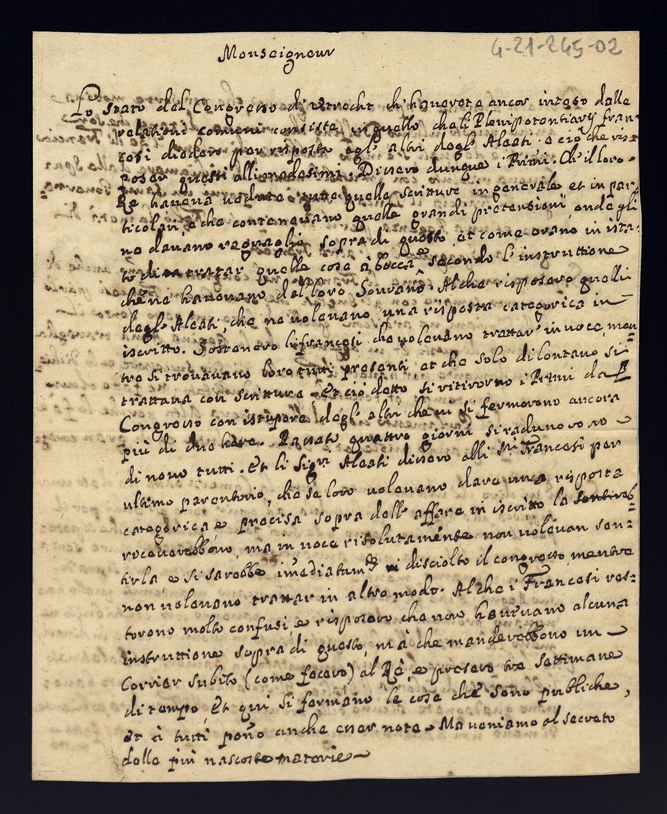 4-21-245-02
Monseigneur
Lo stato del Congresso di Utrecht di havere ancor inteso dalle
relationi comuni consiste in quello che li Plenipotentiarij fran=
cesi diedero per risposta agl' altri degl' Aleati, e ciò che ris=
posero questi alli medesimi. Disero dunque i Primi. Ch'il loro
Rè haveva veduto tutte quelle scritture in generale et in par=
ticolari, e che contenevano quelle grandi pretensioni, onde gli
ne davano raguaglio sopra di questo et come erano in ista=
to di trattar quelle cose à bocca secondo l'instruttione
che ne havevano del loro Sourano. Al che risposero quelli
degl' Aleati, che ne volevano una risposta categorica in
iscritto. Sostenero li francesi che volevano trattar' in voce, men=
tre si trovavano loro tutti presenti et che solo di lontano si
trattava con scritture. Et ciò detto si ritirorno i Primi dal
Congresso con istupore degl' altri che vi si fermorono ancora
più di due hore. Passati quattro giorni si radunorono
di novo tutti. Et li Sigri Aleati disero alli Sri Francesi per
ultimo parentorio, che se loro volevano dare una risposta
categorica e precisa sopra dell' affare in iscritto la
riceverebbero, ma in voce risolutamente non volevan sen=
tirla, e si sarebbe imediatamte disciolto il congresso, mentre
non volevano trattar in altro modo. Al che i Francesi res=
torono molto confusi, e risposero che non havevano alcuna
instruttione sopra di questo, mà che manderebbono un
Corrier subito (come fecero) al Rè, e presero tre settimane
di tempo, Et qui si fermano le cose che sono publiche,
et à tutti pono anche esser note. Ma veniamo al secreto
delle più nascoste materie